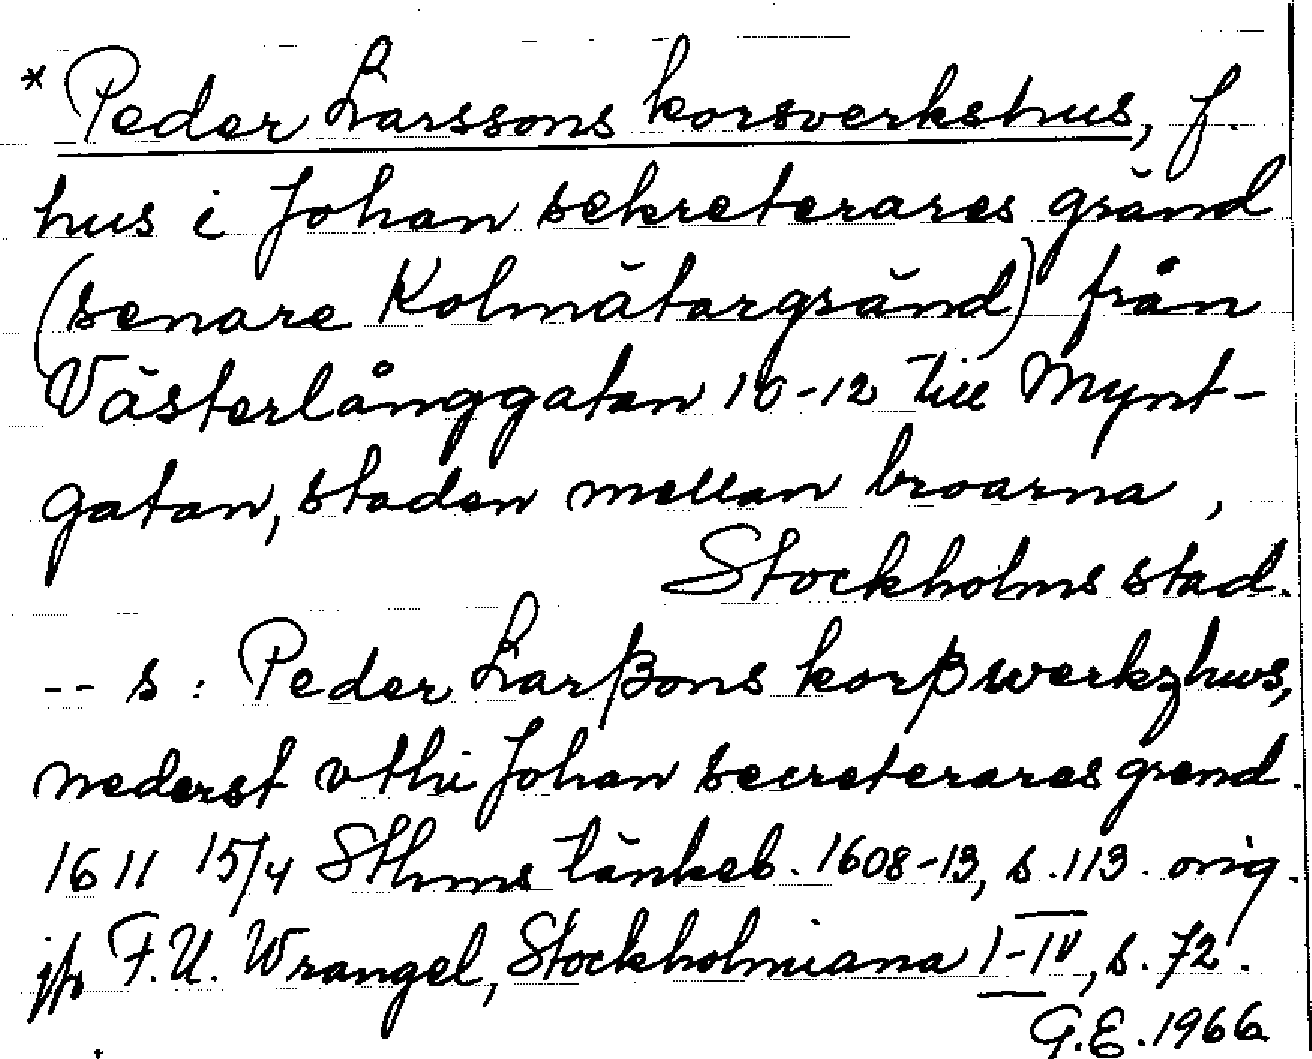 * Peder Larssons korsverkshus, f.
hus i Johan sekreterares gränd
(senare Kolmätargränd) från
Västerlånggatan 10-12 till Mynt-
gatan, staden mellan broarna,
Stockholms stad.
-- s: Peder Larßons korßwerkzhws,
nederst vthi Johan secreterares grend.
1611 15/4 Sthms tänkeb. 1608-13, s. 113. orig.
jfr F.U. Wrangel, Stockholmiana I-IV, s. 72.
G.E. 1966